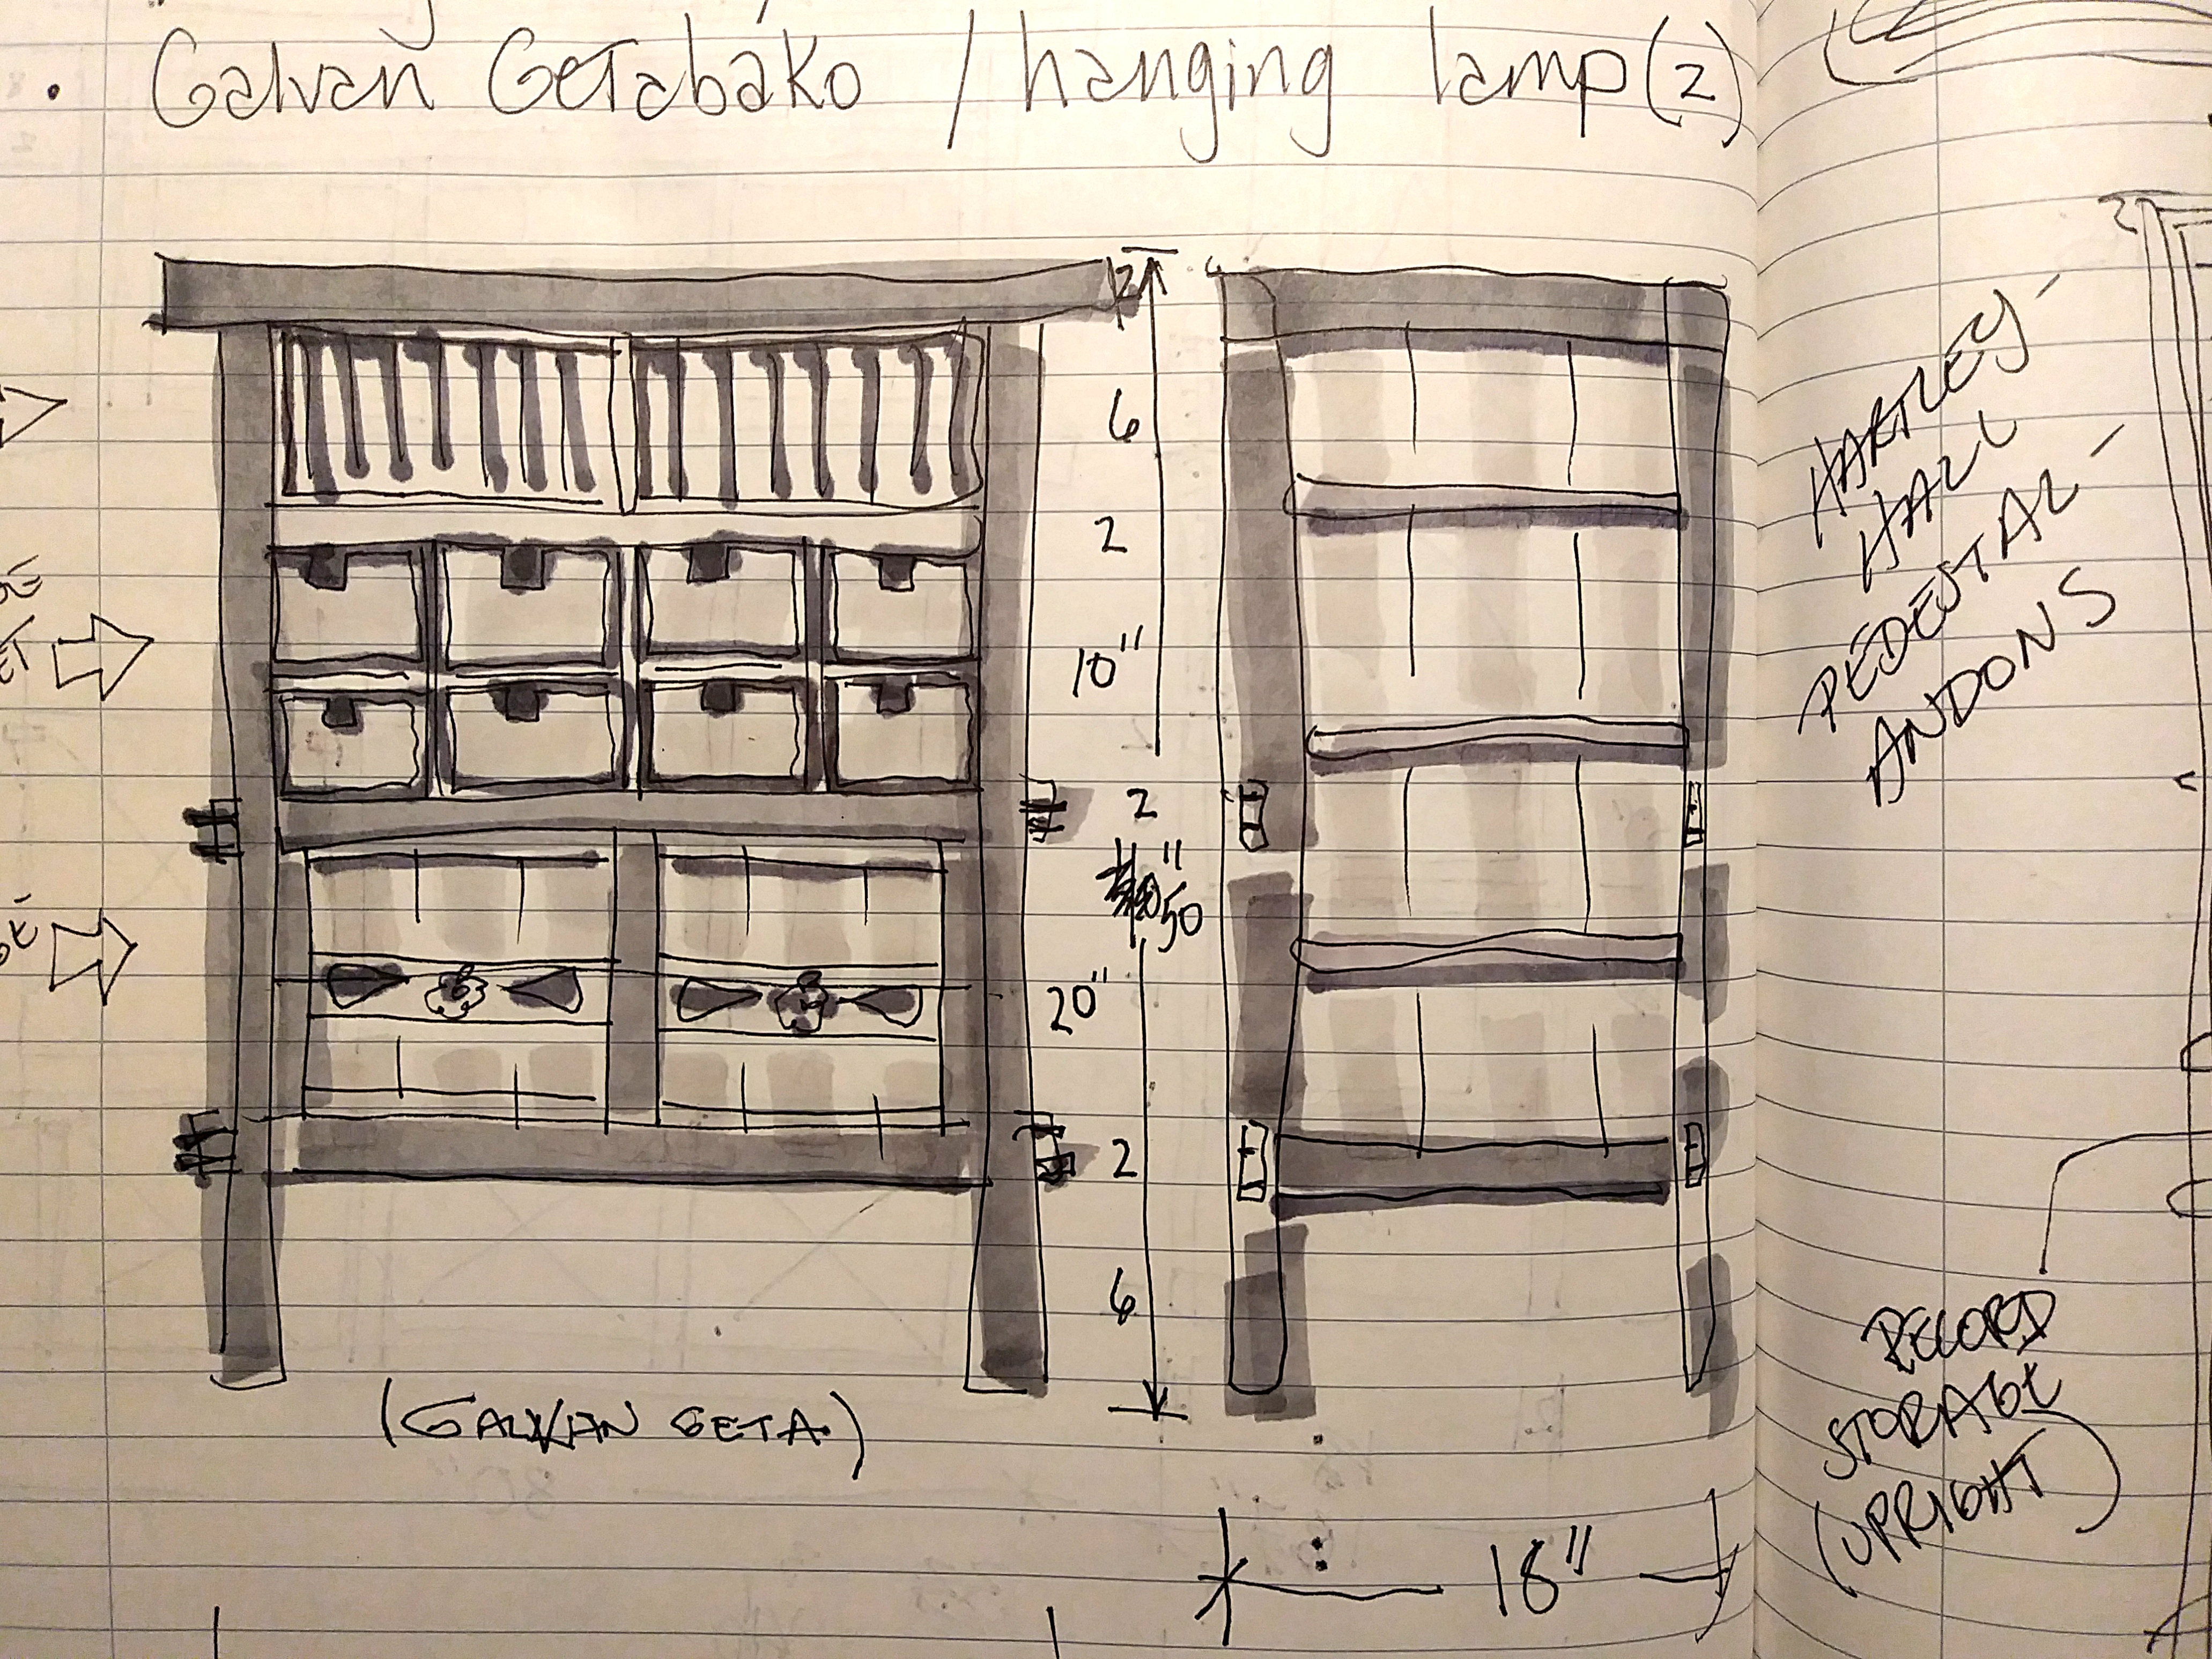 . Galvan Getabako / hanging lamp (2)
6
2
10"
2
50"
20"
2
6
(GALVAN GETA.)
18"
HARTLEY -
HALL
PEDESTAL -
ANDONS
RECORD
STORAGE
(UPRIGHT)